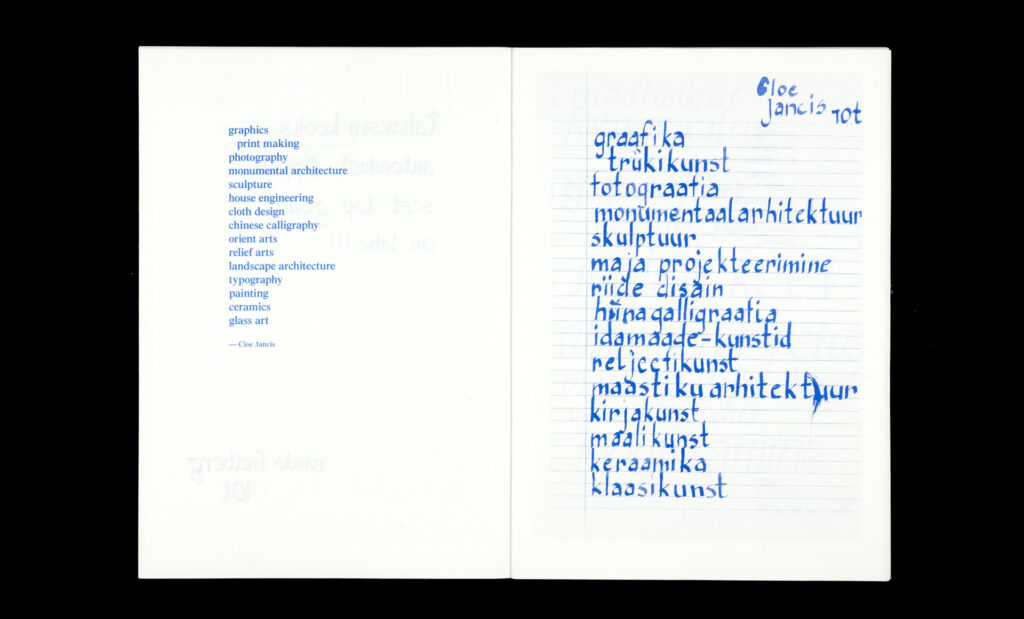 graphics
print making
photography
monumental architecture
sculpture
house engineering
cloth design
chinese calligraphy
orient arts
relief arts
landscape architecture
typography
painting
ceramics
glass art
— Cloe Jancis
Cloe
Jancis 10t
graafika
trükikunst
fotograafia
monumentaalarhitektuur
skulptuur
maja projekteerimine
riide disain
hiina galligraafia
idamaade-kunstid
reljeefikunst
maastiku arhitektuur
kirjakunst
maalikunst
keraamika
klaasikunst